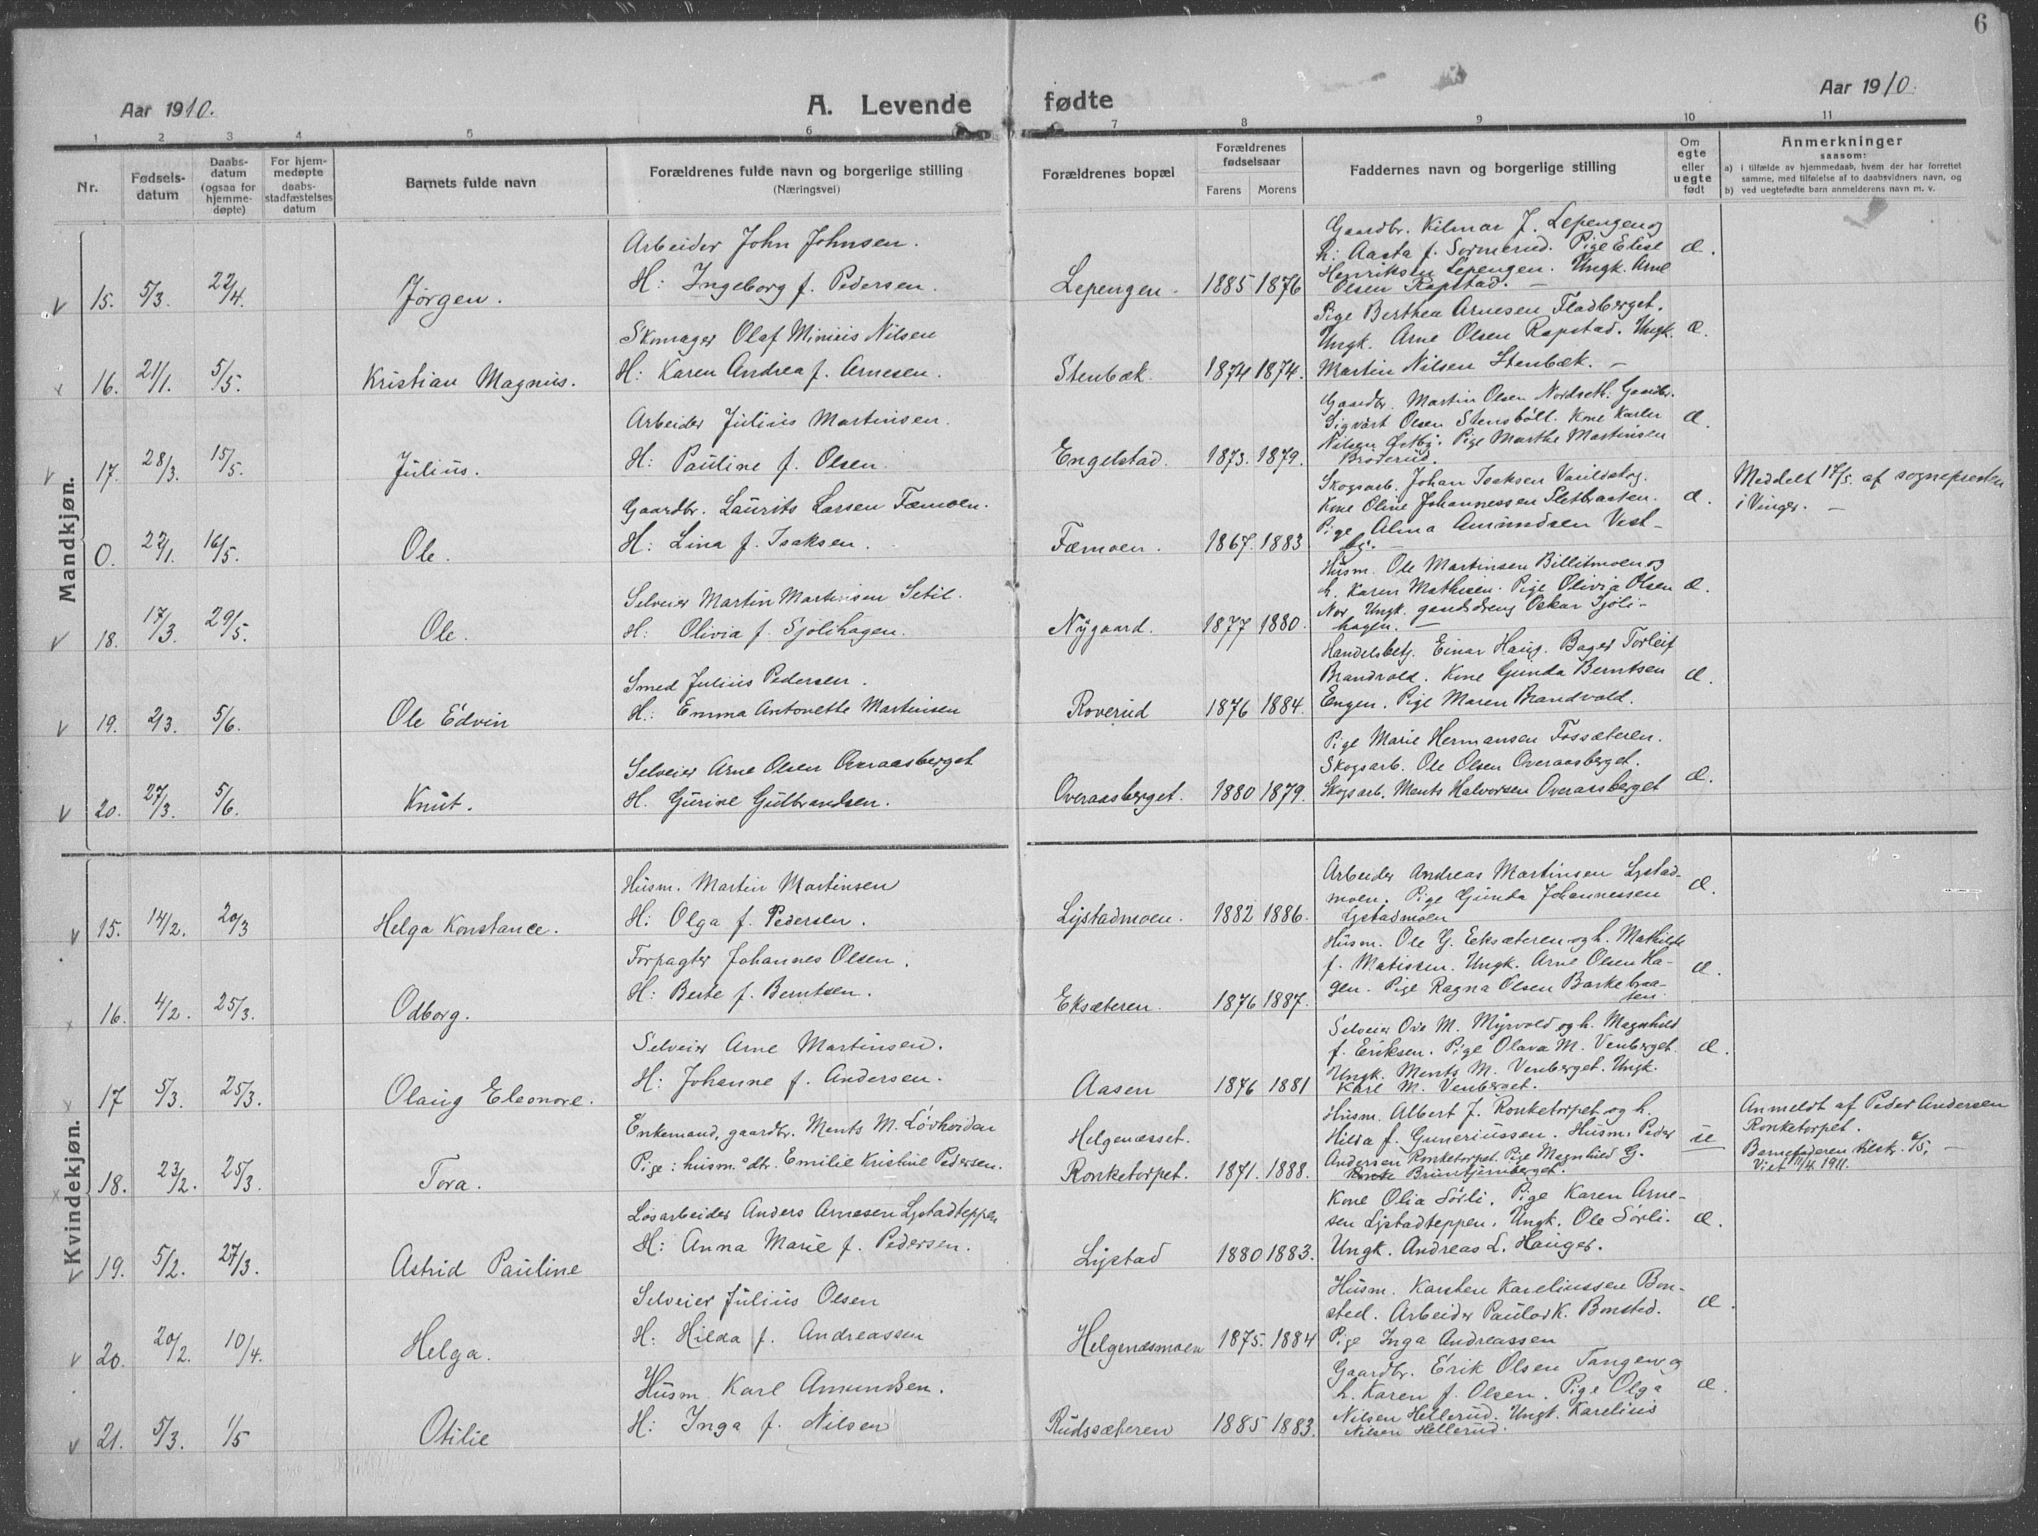 6
Aar 1910.
A. Levende fødte
Aar 1910.
1 2 3 4 5 6 7 8 9 10 11
Nr.
Fødsels-
datum
Daabs-
datum
(ogsaa for
hjemme-
døpte)
For hjem-
medøpte
daabs-
stadfæstelses
datum
Barnets fulde navn
Forældrenes fulde navn og borgerlige stilling
(Næringsvei)
Forældrenes bopæl
Forældrenes
fødselsaar
Farens Morens
Faddernes navn og borgerlige stilling
Om
egte
eller
uegte
født
Anmerkninger
saasom:
a) i tilfælde av hjemmedaab, hvem der har forrettet
samme, med tilføielse af to daabsvidners navn, og
b) ved uegtefødte barn anmelderens navn m. v.
Mandkjøn.
v 15. 5/3. 22/4. Jørgen.
Arbeider John Johnsen.
H: Ingeborg f. Pedersen.
Lepengen. 1885 1876
Gaardbr. Kilmar J. Lepengen og
h: Aasta f. Sormerud. Pige Elise
Henriksen Lepengen. Ungk. Arne
Olsen Rapstad. —
Æ.
x 16. 21/1. 5/5. Kristian Magnus.
Skomager Olaf Minius Nilsen
H: Karen Andrea f. Arnesen.
Stenbæk. 1874 1874.
Pige Berthea Arnesen Fladberget.
Ungk. Arne Olsen Rapstad. Ungk.
Martin Nilsen Stenbæk. —
Æ.
v 17. 28/3. 15/5. Julius.
Arbeider Julius Martinsen.
H: Pauline f. Olsen.
Engelstad. 1873. 1879.
Gaardbr. Martin Olsen Nordseth. Gaardbr.
Sigvart Olsen Stensböll. Kone Karen
Nilsen Østby. Pige Marthe Martinsen
Bröderud.
Æ.
0. 22/1. 16/5. Ole.
Gaardbr. Laurits Larsen Fæmoen.
H: Lina f. Isaksen.
Fæmoen. 1867. 1883
Skogsarb. Johan Isaksen Varildstog.
Kone Oline Johannessen Sletbraaten.
Pige Alma Amundsen Vest-
by. —
Æ.
Meddelt 17/5. af sognepresten
i Vinger. —
v 18. 17/3. 29/5. Ole.
Selveier Martin Martinsen Setil.
H: Olivia f. Sjolihagen.
Nygaard. 1877 1880.
Husm. Ole Martinsen Billitmoen og
h. Karen Mathisen. Pige Olivia Olsen
Nor. Ungk. gaardsdreng Oskar Sjöli-
hagen. —
Æ.
v 19. 2/3. 5/6. Ole Edvin
Smed Julius Pedersen.
H: Emma Antonette Martinsen
Roverud 1876 1884.
Handelsbetj. Einar Haug. Bager Torleif
Brandvold. Kone Gunda Berntsen
Engen. Pige Maren Brandvold.
Æ.
v 20. 27/3. 5/6. Knut.
Selveier Arne Olsen Overaasberget
H. Gurine Gulbrandsen.
Overaasberget. 1880 1879.
Pige Marie Hermansen Fossæteren.
Skogsarb. Ole Olsen Overaasberget.
Skogsarb. Ments Halvorsen Overaasberget
Æ.
Kvindekjøn.
v 15. 14/2. 20/3 Helga Konstance.
Husm. Martin Martinsen
H: Olga f. Pedersen.
Lystadmoen. 1882 1886.
Arbeider Andreas Martinsen Lystad-
moen. Pige Gunda Johannessen
Lystadmoen
Æ.
x 16. 4/2. 25/3. Odborg.
Forpagter Johannes Olsen.
H: Berte f. Berntsen.
Eksæteren. 1876 1887.
Husm. Ole G. Eeksæteren og h. Mathilde
f. Matissen. Ungk. Arne Olsen Ha-
gen. Pige Ragna Olsen Barkebraa-
ten.
Æ.
x 17 5/3. 25/3. Olaug Eleonore.
Selveier Arne Martinsen.
H: Johanne f. Andersen.
Aasen 1876 1881
Selveier Ove M. Myrvold og h. Magnhild
f. Eriksen. Pige Olava M. Venberget.
Ungk. Ments M. Venberget. Ungk.
Karl M. Venberget.
Æ.
x 18. 23/2. 25/3. Tora.
Enkemand, gaardbr. Ments M. Lövhöiden
Pige: husm. dtr. Emilie Kristine Pedersen.
Helgenæsset.
Ronketorpet. 1871. 1888.
Husm. Albert J. Ronketorpet og h.
Hilda f. Guneriussen. Husm. Peder
Andersen Ronketorpet. Pige Magnhild G.
Bruntjernberget.
ue
Anmeldt af Peder Andersen
Ronketorpet.
Barnefaderen tilskr. 6/5, —
Viet 11/4. 1911.
v 19. 5/2. 27/3. Astrid Pauline
Løsarbeider Anders Arnesen Lystadteppen
H: Anna Marie f. Pedersen.
Lystad 1880 1883.
Kone Olia Sörli. Pige Karen Arne-
sen Lystadteppen. Ungk. Ole Sörli.
Ungk. Andreas L. Hauger.
Æ.
v 20. 20/2. 10/4. Helga.
Selveier Julius Olsen
H: Hilda f. Andreassen
Helgenæsmoen 1875. 1884
Husm. Karsten Kareliussen Bon-
sted. Arbeider Paul K. Bonsted.
Pige Inga Andreassen
Æ.
v 21. 5/3. 1/5 Otilie
Husm. Karl Amundsen.
H: Inga f. Nilsen
Rudssæteren 1885 1883.
Gaardbr. Erik Olsen Tangen og
h. Karen f. Olsen. Pige Olga
Nilsen Hellerud. Ungk. Karelius
Nilsen Hellerud.
Æ.